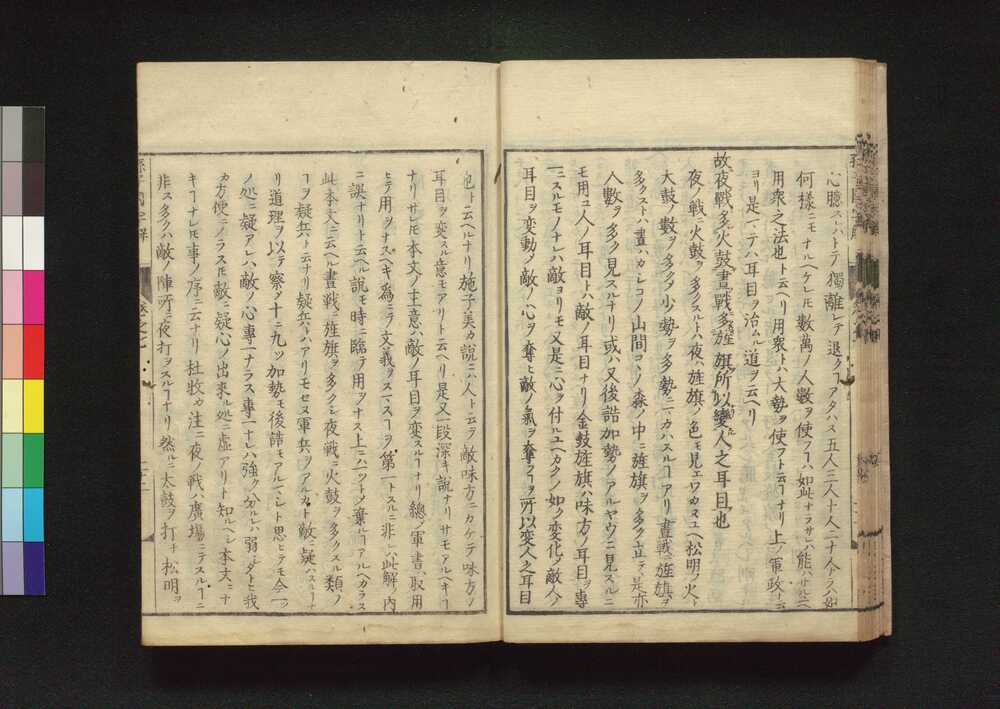 心臆スレハトテ獨離レテ退クヿアタハス五人三人十人二十人ナラハ如
何樣ニモナルヘケレ𪜈數萬ノ人數ヲ使フハ如此ナラサレハ能ハサルユヘ
用衆之法也ト云ヘリ用衆トハ大勢ヲ使フト云ヿナリ上ノ軍政ニ云
ヨリ是マテハ耳目ヲ治ムル道ヲ云ヘリ
故夜戰多火鼓晝戰多旌旗所以變人之耳目也
夜ノ戰ニ火鼓ヲ多クスルトハ夜ハ旌旗ノ色モ見エワカヌユヘ松明ノ火ト
大鼓ノ數ヲ多クシ少勢ヲ多勢ニミスルヿアリ晝戰ニ旌旗ヲ
多クストハ晝ハカシコノ山間コヽノ森ノ中ニ旌旗ヲ多ク立テ是亦
人數ヲ多ク見スルナリ或ハ又後詰加勢ノアルヤウニ見スルニ
モ用ユ人ノ耳目トハ敵ノ耳目ナリ金鼓旌旗ハ味方ノ耳目ヲ專
一ニスルモノナレハ敵ヨリモ又是ニ心ヲ付ルユヘカクノ如ク変化ノ敵人ノ
耳目ヲ変動ノ敵ノ心ヲ奪ヒ敵ノ氣ヲ奪フヿヲ所以変人之耳目
也ト云ヘルナリ施子美カ說ニハ人ト云ヲ敵味方ニカケテ味方ノ
耳目ヲ変スル意モアリト云ヘリ是又一段深キ說ナリサモアルヘキヿ
ナリサレ𪜈本文ノ主意ハ敵ノ耳目ヲ変スルヿナリ總ノ軍書ハ取用
ヒテ用ヲナスヘキ爲ニテ文義ヲスマスヿヲ第一トスルニ非レハ此解ノ内
ニ誤ナリト云ヘル說モ時ニ臨テ用ヲナス上ニハツトメテ棄ルヿアルヘカラス
此本文ニ云ヘル晝戰ニ旌旗ヲ多クシ夜戰ニ火鼓ヲ多クスル類ノ
ヿヲ疑兵ト云ナリ疑兵ハハアリモセヌ軍兵ヲアルカト敵ニ疑ハスルヿナ
リ道理ヲ以テ察ク十ニ九ツ加勢モ後詰モアルマシト思ヒテモ今一ツ
ノ処ニ疑アレハ敵ノ心專一ナラス專一ナレハ強ク分ルレハ弱シタトヒ我
カ方便ニノラス𪜈敵ニ疑心ノ出來ル処ニ虛アリト知ルヘシ本文ニナ
キヿナレ𪜈事ノ序ニ云ナリ杜牧カ注ニ夜ノ戰ハ廣場ニテスルヿニ
非ス多クハ敵ノ陣所ニ夜打ヲスルヿナリ然ルニ太鼓ヲ打チ松明ヲ